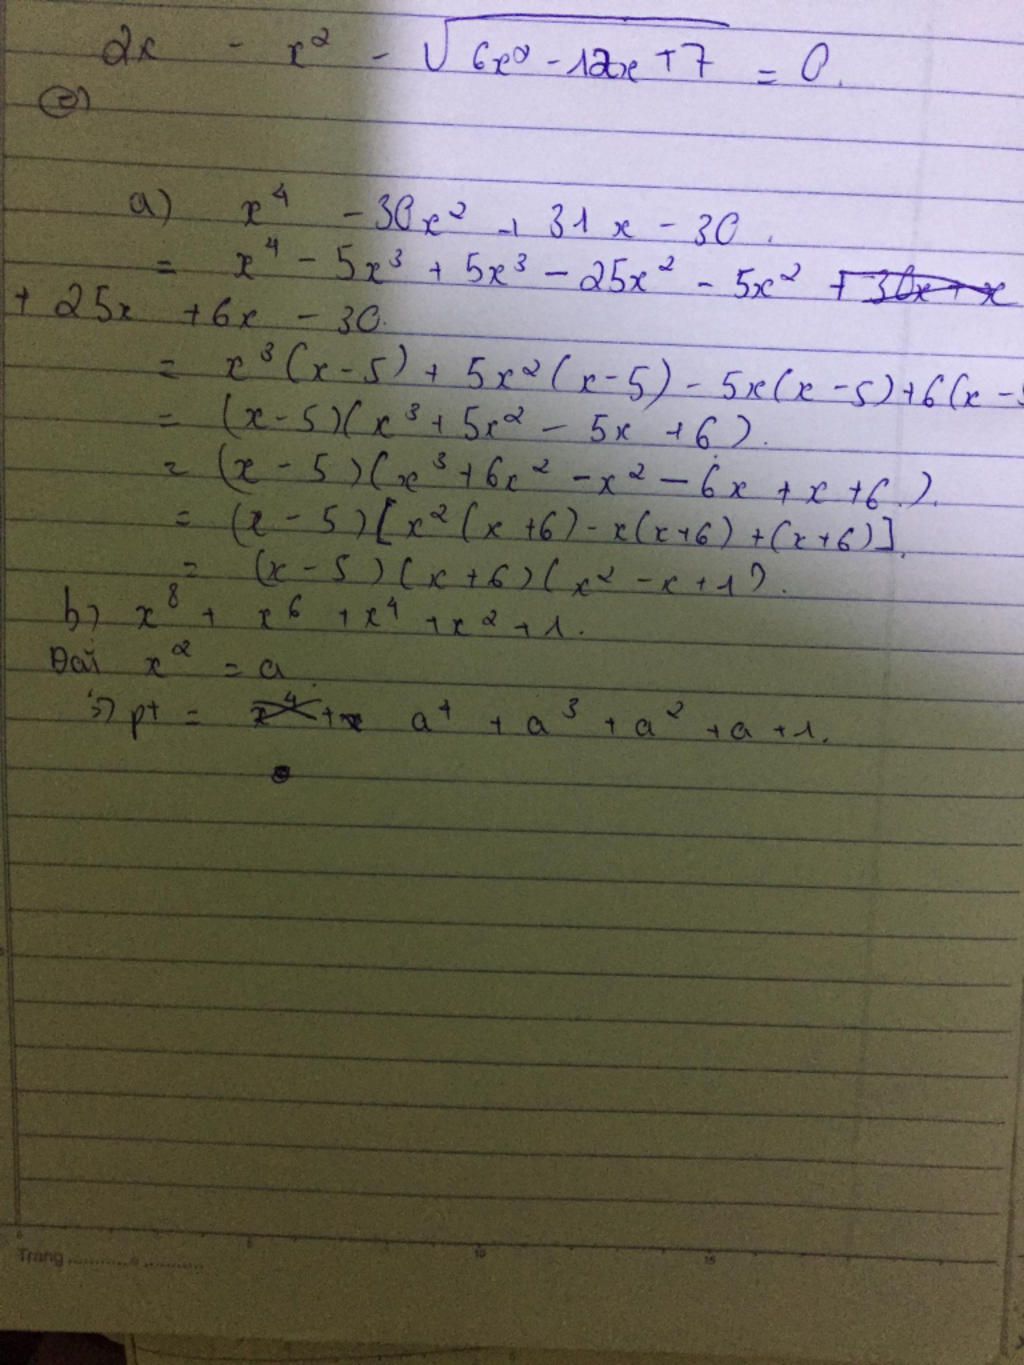 2x - x² - √(6x² - 12x + 7) = 0.
②
a) x⁴ - 30x² + 31x - 30.
= x⁴ - 5x³ + 5x³ - 25x² - 5x² + 30x + x
+ 25x + 6x - 30.
= x³(x-5) + 5x²(x-5) - 5x(x-5) + 6(x-5
= (x-5)(x³ + 5x² - 5x + 6).
= (x-5)(x³ + 6x² - x² - 6x + x + 6).
= (x-5)[x²(x+6) - x(x+6) + (x+6)].
= (x-5)(x+6)(x² - x + 1).
b) x⁸ + x⁶ + x⁴ + x² + 1.
x² = a
pt = x⁴ + x a⁴ + a³ + a² + a + 1.
Trang
5 10 15